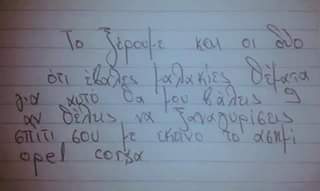 Το ξέρουμε και οι δύο
ότι έβαλες μαλακίες θέματα
για αυτό θα μου βάλεις 9
αν θέλεις να ξαναγυρίσεις
σπίτι σου με εκείνο το ασημί
opel corsa